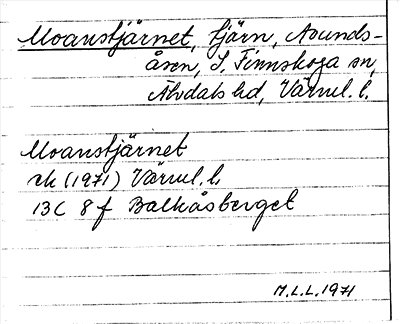 Moanstjärnet, tjärn, Avunds-
åsen, S. Finnskoga sn,
Älvdals hd, Värml. l.
Moanstjärnet
ek (1971) Värml. l.
13C 8f Balkåsberget
M.L.L. 1971